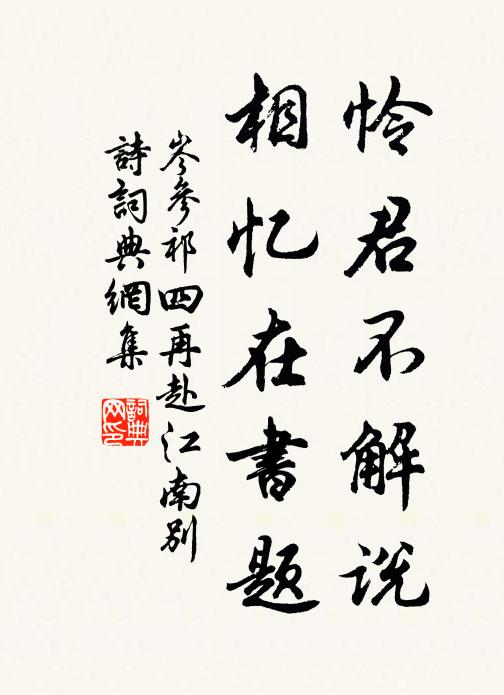 怜君不解说
相忆在書题
岑參祁四再赴江南别
詩詞典網集
詞典
网印